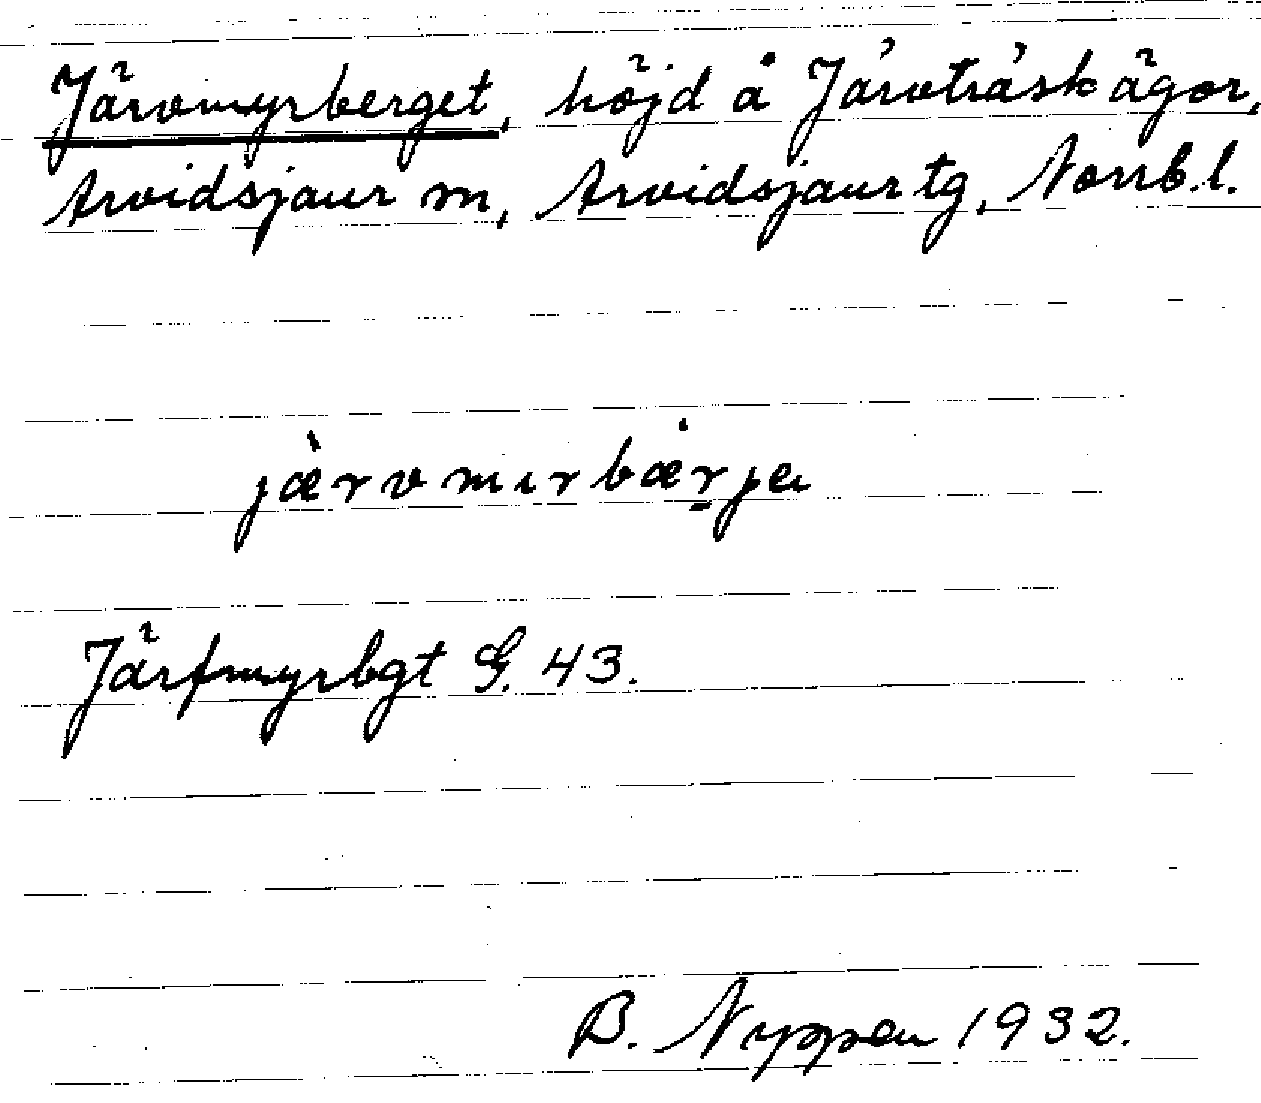 Järvmyrberget, höjd å Järvträsk ägor,
Arvidsjaur sn, Arvidsjaur tg, Norrb.l.
jæ̀rvmɩrbæ̇r̠jɐ
Järfmyrbgt G. 43.
B. Nyppen 1932.